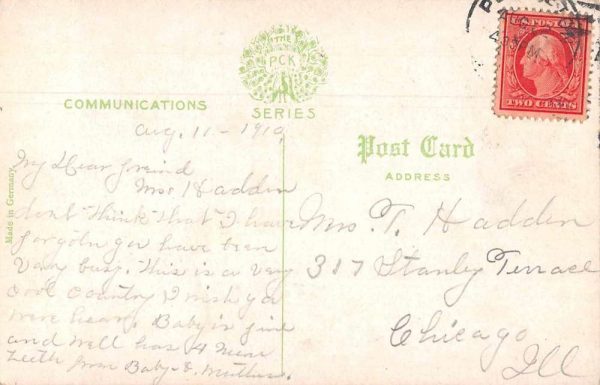 THE
PCK
SERIES
COMMUNICATIONS
Aug. 11 - 1910
My Dear freind
Mrs Hadden
dont think that I have
forgotn you have been
Very busy. This is a very
cool country I wish you
were hear. Baby is fine
and well has 4 more
teeth from Baby & Mother.
Made in Germany
Post Card
ADDRESS
Mrs. T. Hadden
317 Stanley Terrace
Chicago
Ill
U.S. POSTAGE
TWO CENTS